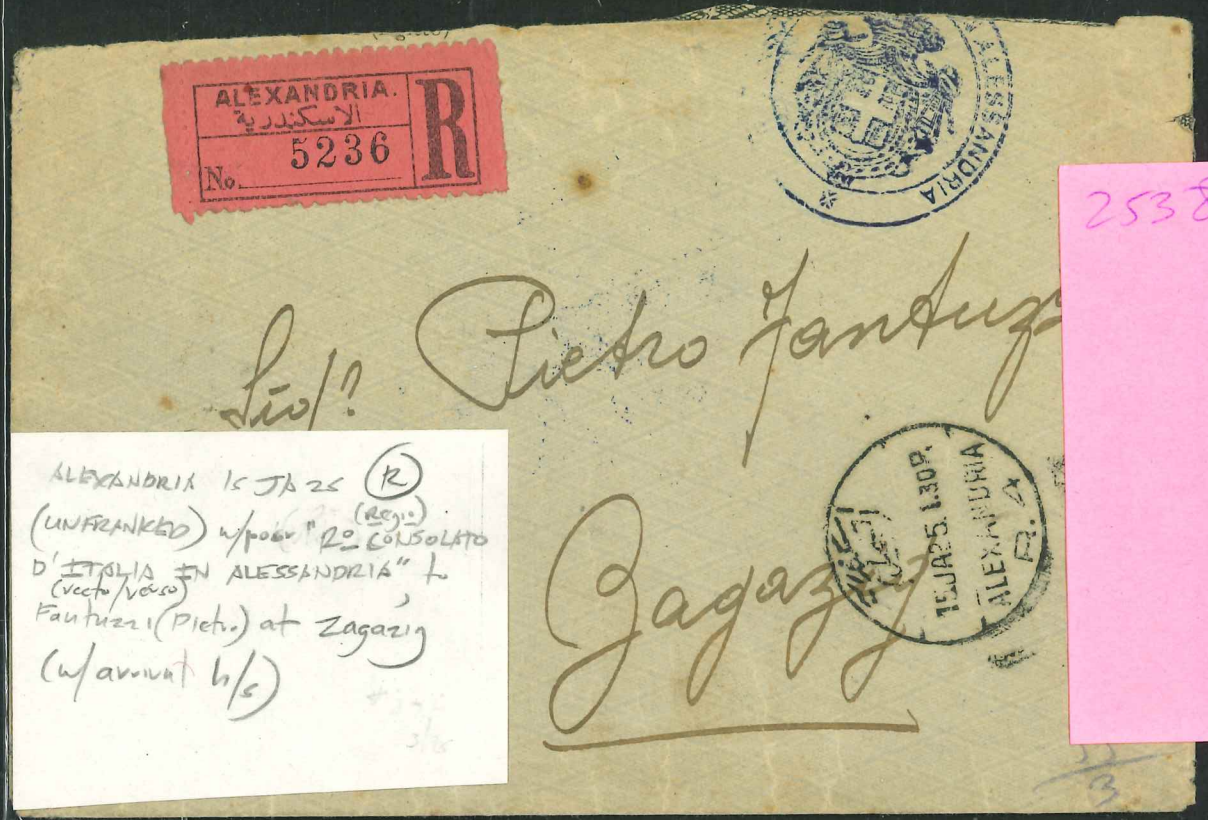 ALEXANDRIA.
الاسكندرية
No. 5236
R
ALESSANDRIA
2538
Pietro Fantuzz
Zagazig
15JA25.1.30P.
ALEXANDRIA
R.4
ALEXANDRIA 15 JA 25 R
(UNFRANKED) w/ "Rº (Regio) CONSOLATO
D'ITALIA IN ALESSANDRIA" to
(recto/verso)
Fantuzzi (Pietro) at Zagazig
(w/ arrival h/s)
3